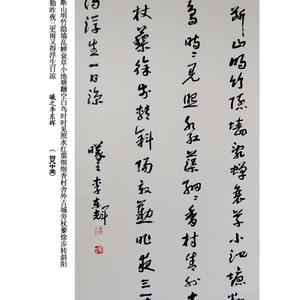 断山明竹隐墙乱蝉衰草小池塘
鸟时时见照水红蕖细细香村舍外
杖藜徐步转斜阳殷勤昨夜三
得浮生一日凉
曦之李东辉
断山明竹隐墙乱蝉衰草小池塘翻空白鸟时时见照水红蕖细细香村舍外古城旁杖藜徐步转斜阳
勤昨夜三更雨又得浮生一日凉 曦之李东辉 (四尺中堂)